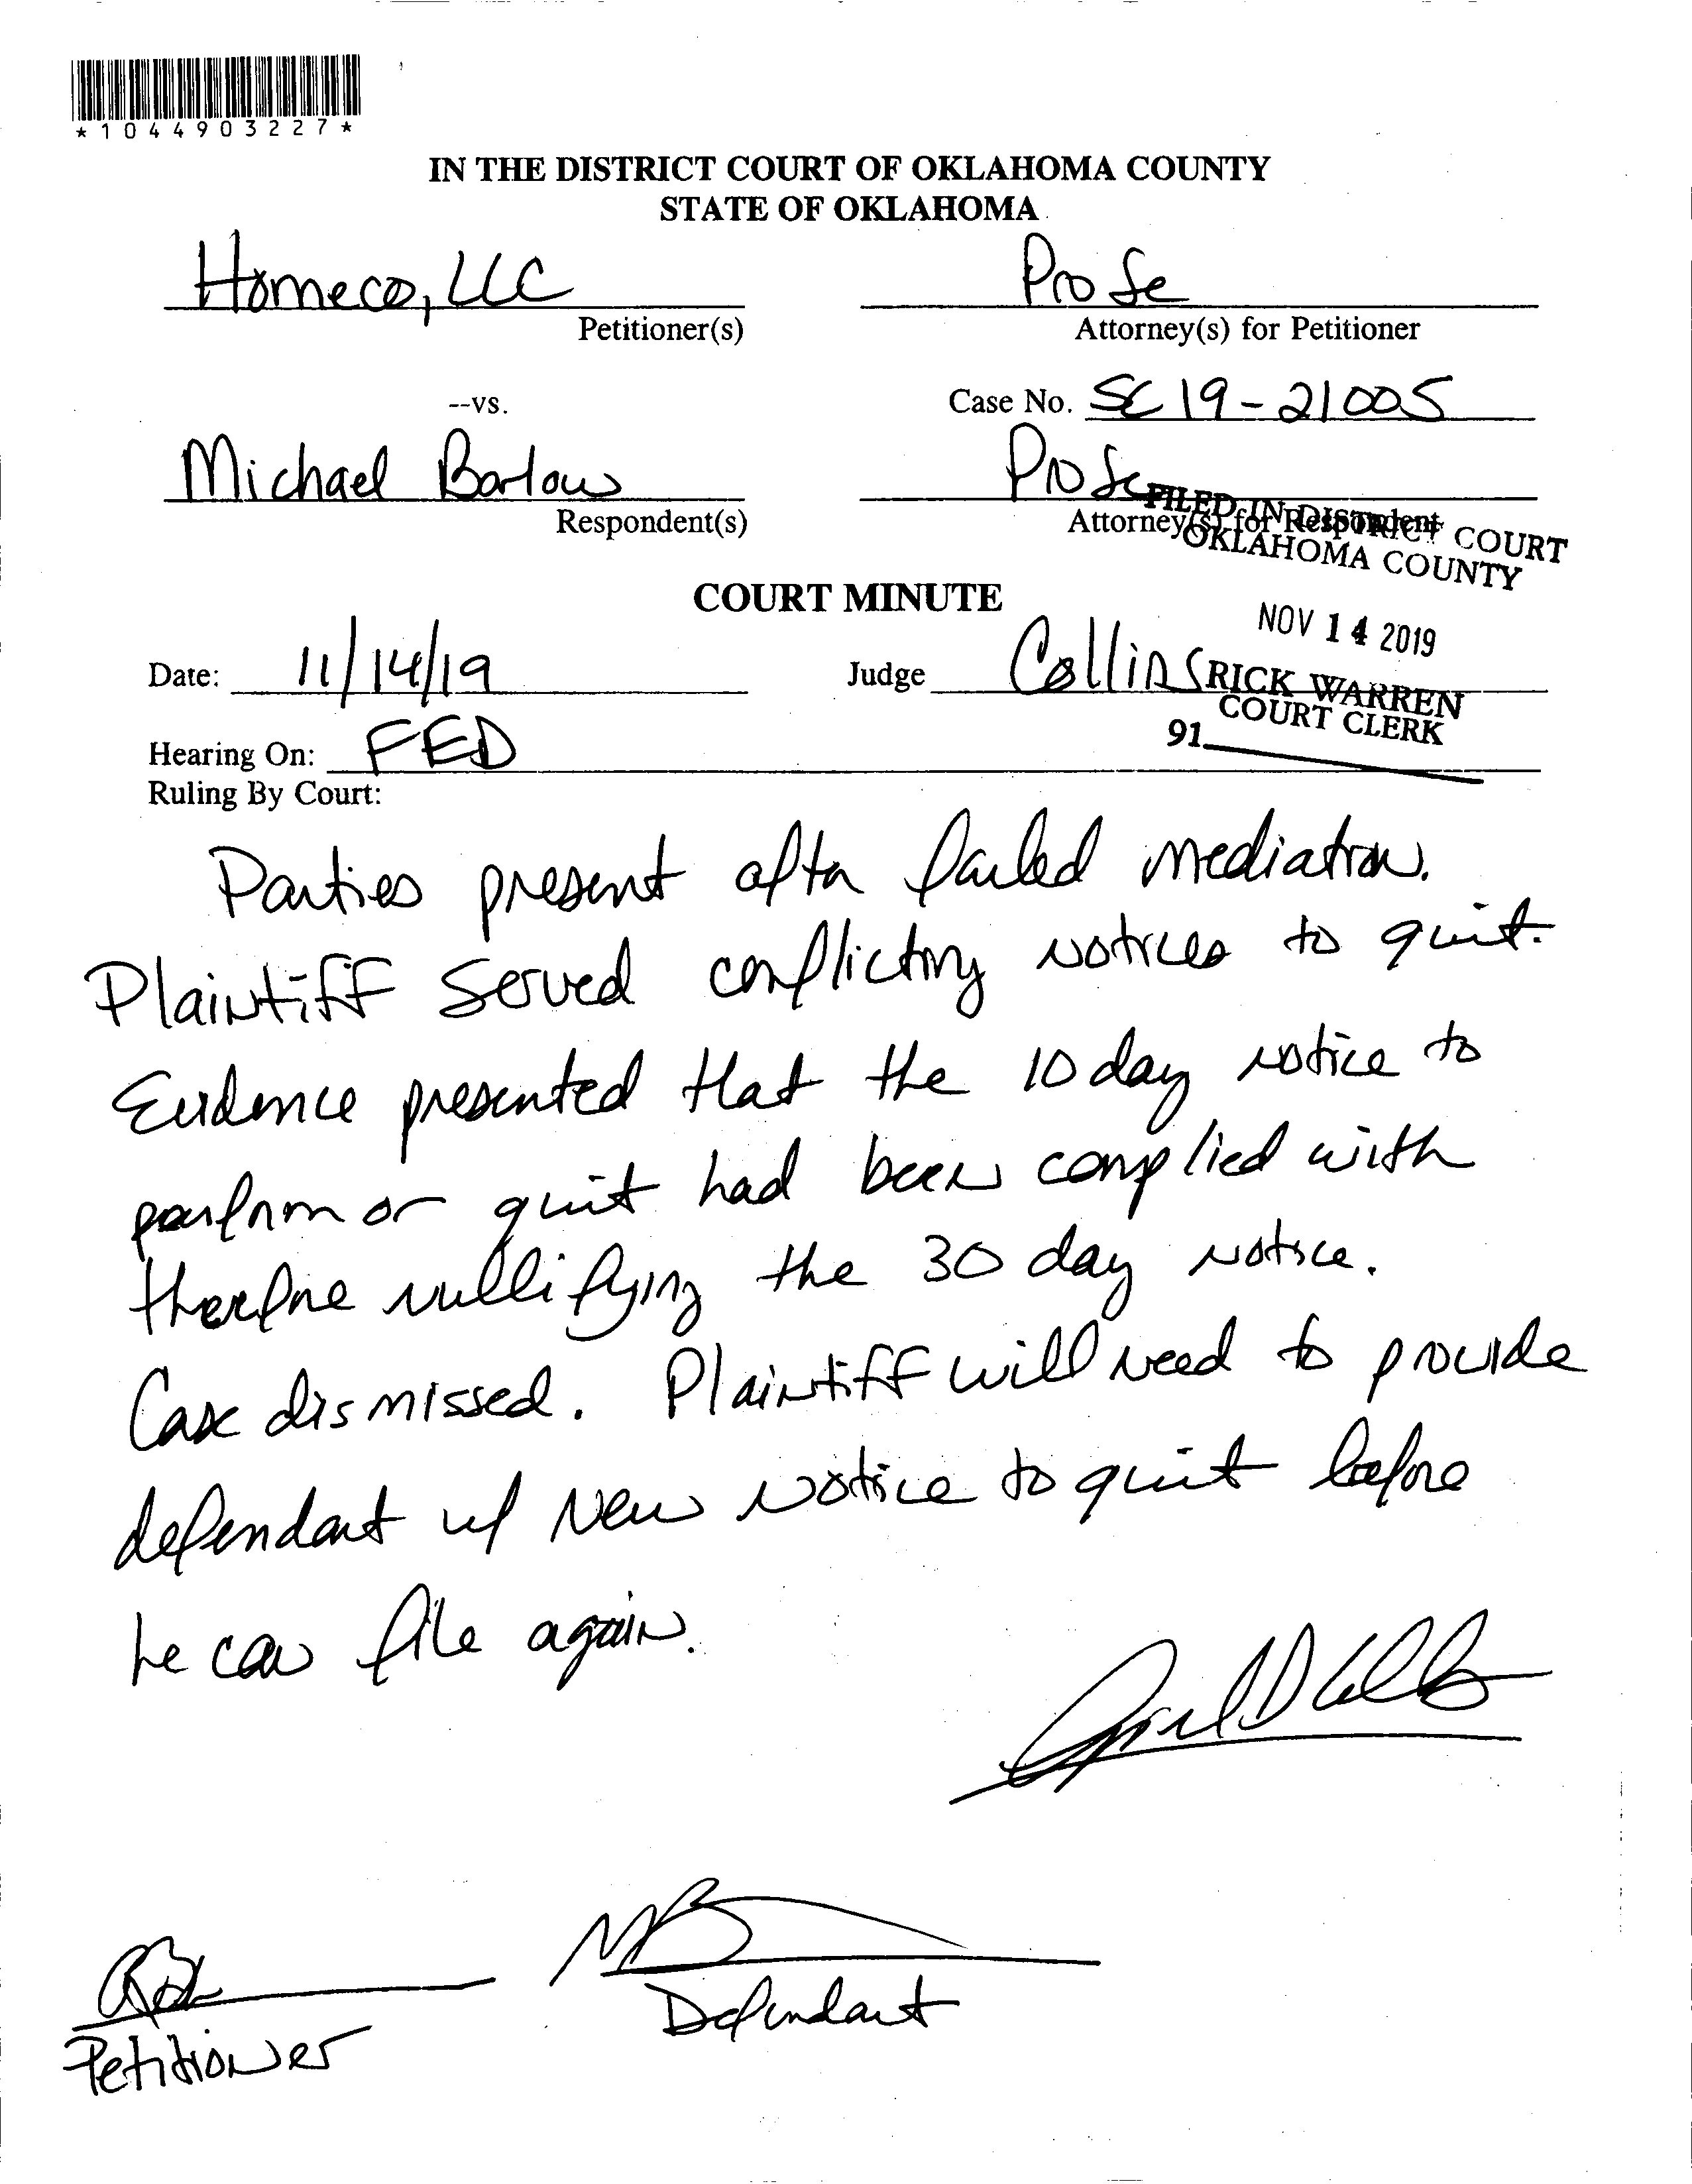 *1044903227*
IN THE DISTRICT COURT OF OKLAHOMA COUNTY
STATE OF OKLAHOMA
Homeco, LLC Pro Se
Petitioner(s) Attorney(s) for Petitioner
--vs. Case No. SC 19-21005
Michael Barlow Pro Se
Respondent(s) Attorney(s) for Respondent
FILED IN DISTRICT COURT
OKLAHOMA COUNTY
COURT MINUTE
NOV 14 2019
Date: 11/14/19 Judge Collins
RICK WARREN
COURT CLERK
91
Hearing On: FED
Ruling By Court:
Parties present after failed mediation.
Plaintiff served conflicting notices to quit.
Evidence presented that the 10 day notice to
perform or quit had been complied with
therefore nullifying the 30 day notice.
Case dismissed. Plaintiff will need to provide
defendant w/ new notice to quit before
he can file again.
MB
Defendant
Petitioner